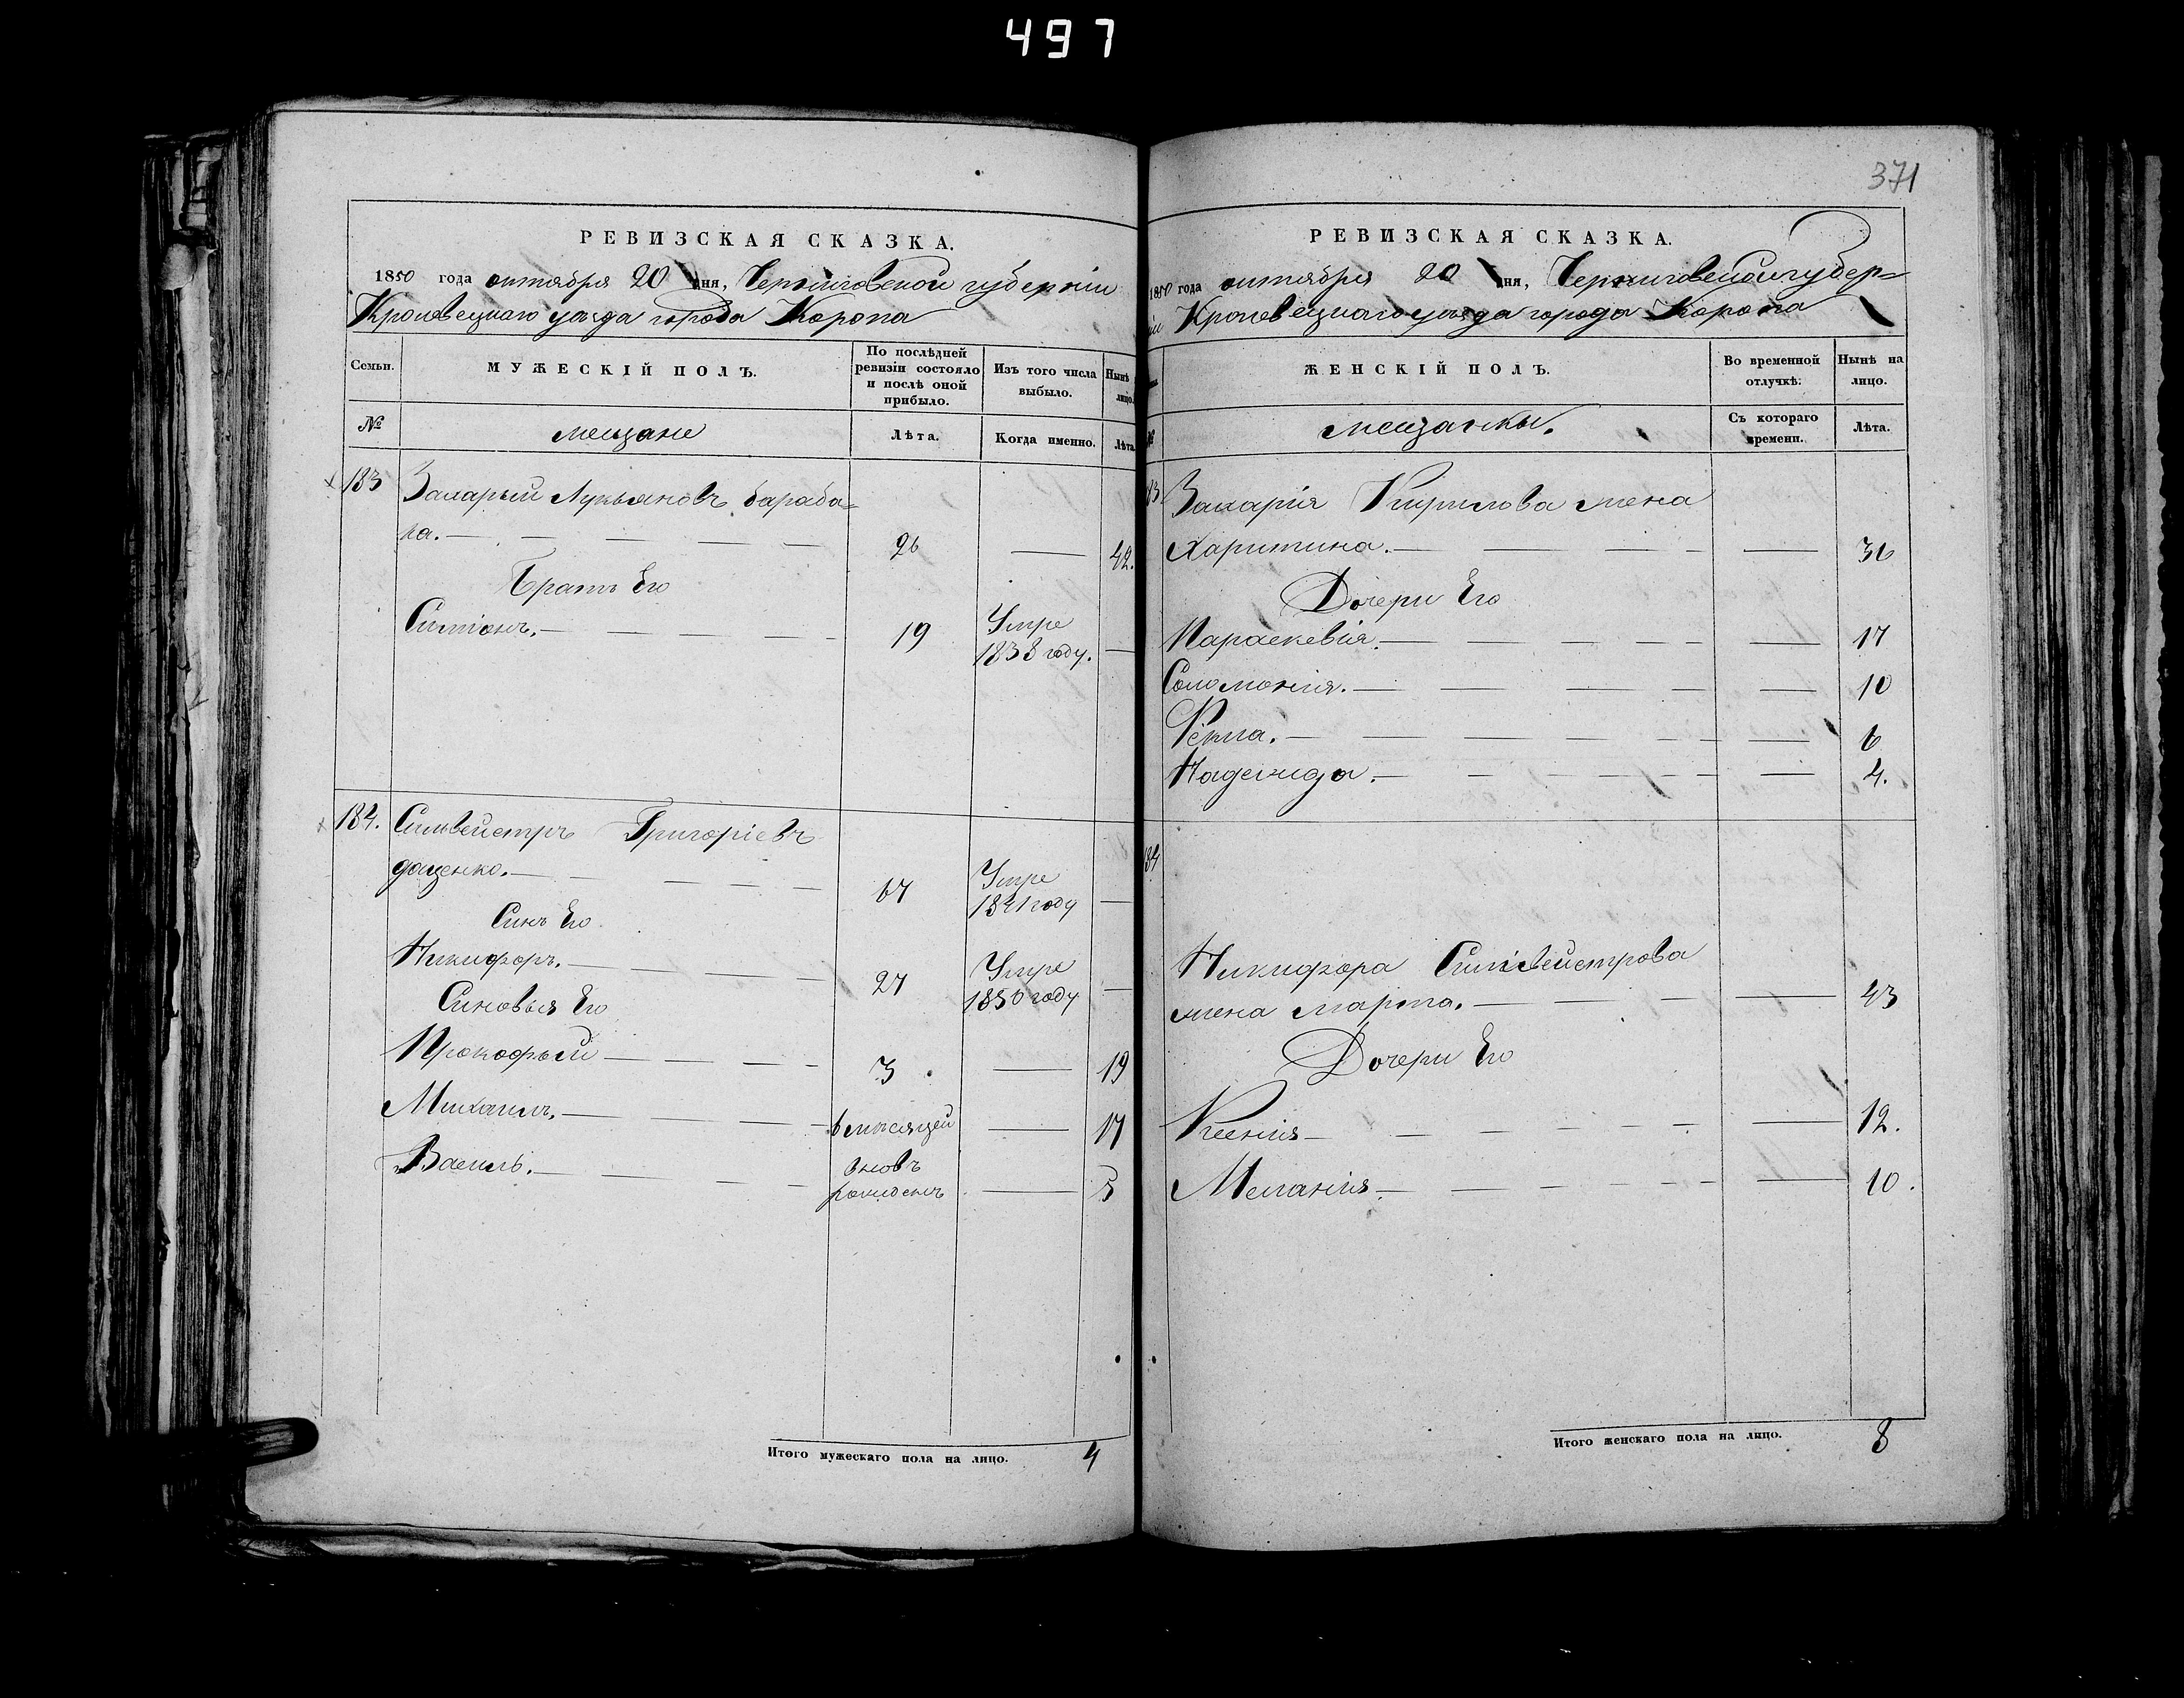 497
371
РЕВИЗСКАЯ СКАЗКА.
1850 года октября 20 дня, Черниговской губерніи
Кролевецкаго уѣзда города Коропа
Семьи.
МУЖЕСКІЙ ПОЛЪ.
По послѣдней ревизіи состояло и послѣ оной прибыло.
Изъ того числа выбыло.
Нынѣ лицо.
№
мещане
Лѣта.
Когда именно.
Лѣта
183 Захарый Лукьяновъ бараба=
ка. 26 — 42.
Братъ Его
Симіонъ. 19 Умре
1838 году. —
184. Сильвейстръ Григоріевъ
даценко. 67 Умре
1841 году —
Синъ Его
Никифоръ. 27 Умре
1850 году —
Синовья Его
Прокофый 3 — 19
Михаилъ. 6 мѣсяцей — 17
Василь. вновь
рожденъ — 5
Итого мужескаго пола на лицо. 4
РЕВИЗСКАЯ СКАЗКА.
1850 года октября 20 дня, Черниговской губер=
ніи Кролевецкаго уѣзда города Коропа
ЖЕНСКІЙ ПОЛЪ.
Во временной отлучкѣ.
Нынѣ на лицо.
№
мещанки.
Съ котораго времени.
Лѣта.
83 Захарія Кирилова жена
Харитина. — 36
Дочери Его
Параскевія. — 17
Соломонія. — 10
Фекла. — 6
Надежда. — 4.
84
Никифора Сильвейстрова
жена марта. — 43
Дочери Его
Ксенія — 12.
Меланія. — 10.
Итого женскаго пола на лицо. 8